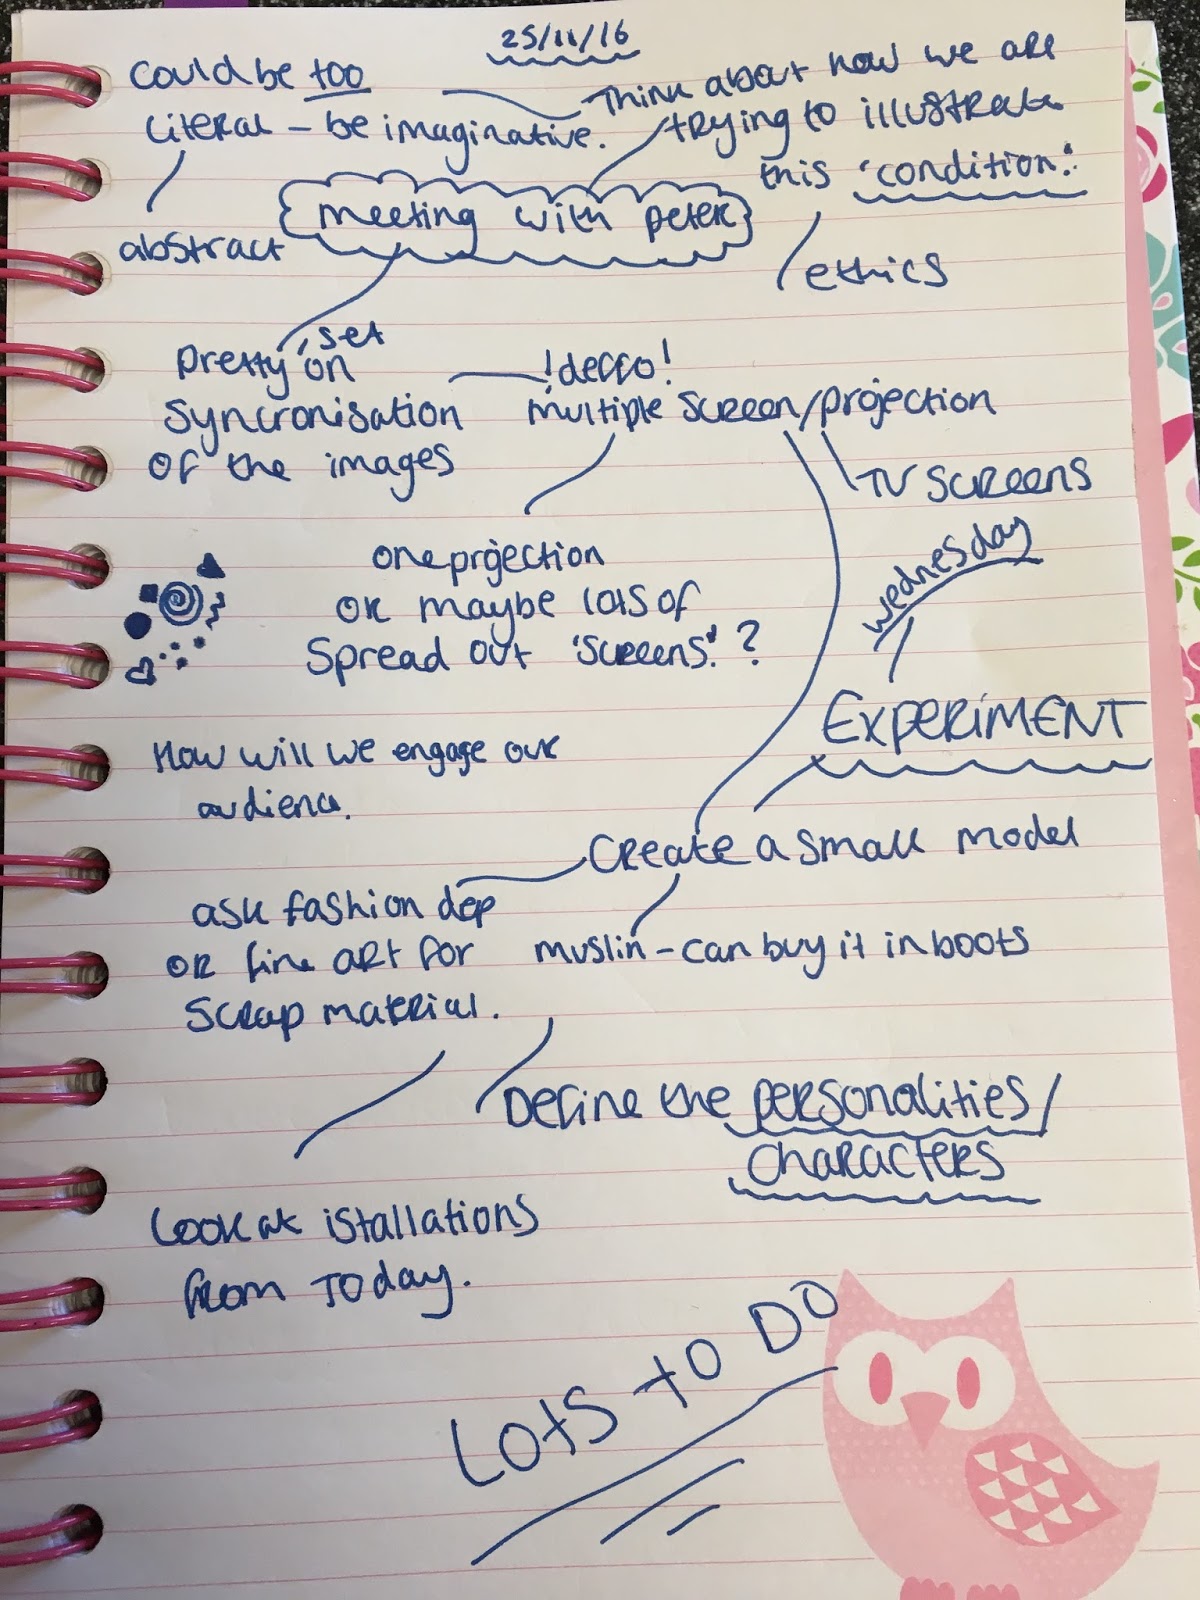 25/11/16
could be too
literal - be imaginative.
abstract
Think about how we are
trying to illustrate
this 'condition'.
ethics
meeting with peter
pretty 'set
on
syncronisation
of the images
!decco!
multiple screen/projection
TV screens
one projection
or maybe lots of
spread out 'screens'. ?
wednesday
EXPERIMENT
How will we engage our
audience.
Create a small model
ask fashion dep
or fine art for
scrap material.
muslin - can buy it in boots
Define the personalities/
characters
Look at istallations
from today.
Lots to do